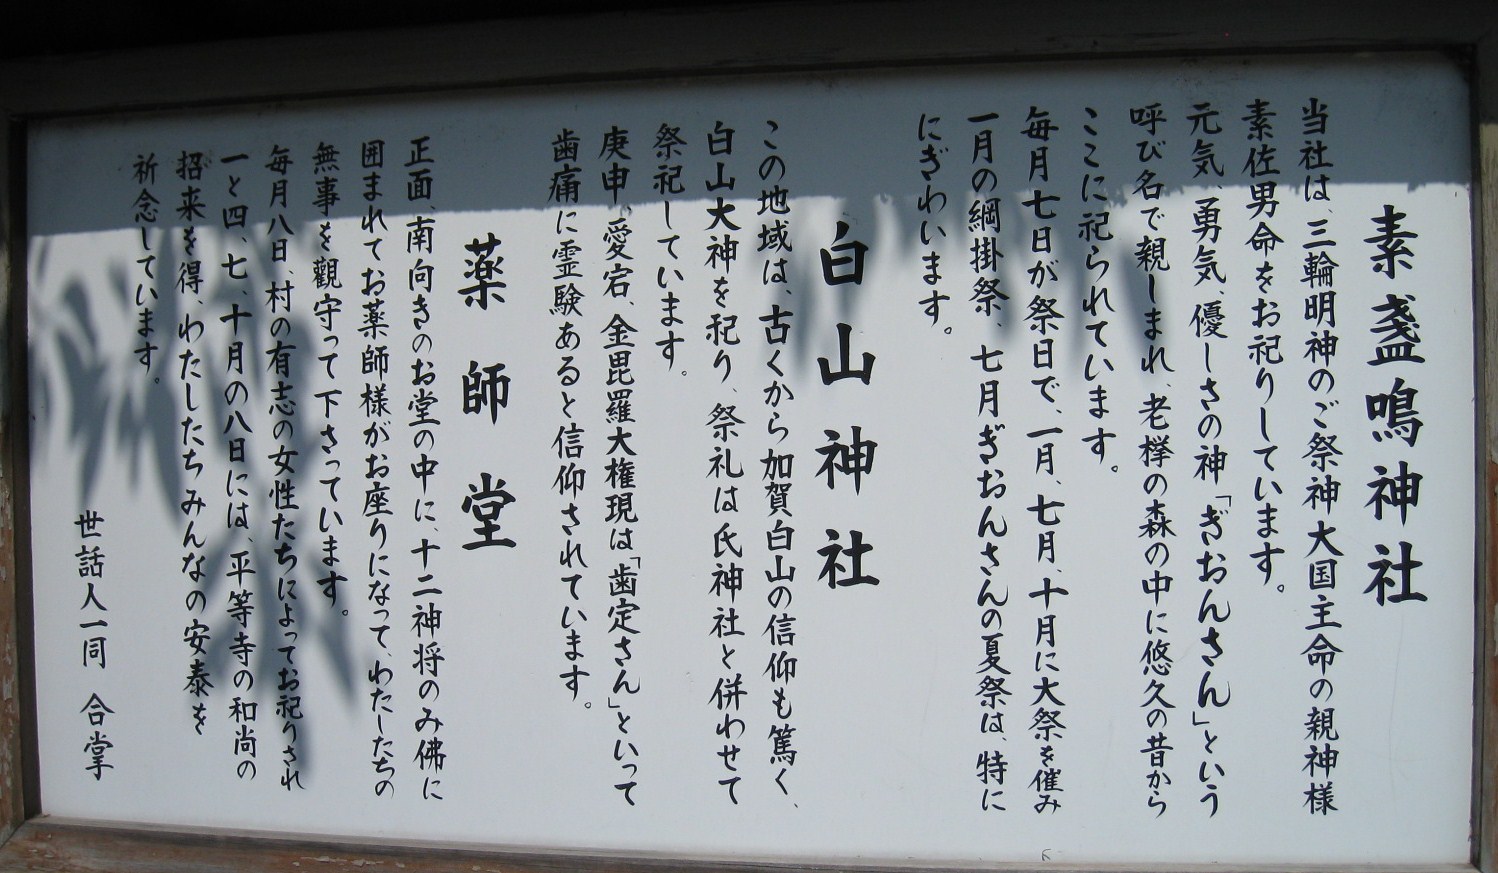 素盞嗚神社
当社は、三輪明神のご祭神大国主命の親神様
素佐男命をお祀りしています。
元気、勇気、優しさの神「ぎおんさん」という
呼び名で親しまれ、老欅の森の中に悠久の昔から
ここに祀られています。
毎月七日が祭日で、一月、七月、十月に大祭を催み
一月の綱掛祭、七月ぎおんさんの夏祭は、特に
にぎわいます。
白山神社
この地域は、古くから加賀白山の信仰も篤く、
白山大神を祀り、祭礼は氏神社と併わせて
祭祀しています。
庚申。愛宕、金毘羅大権現は「歯定さん」といって
歯痛に霊験あると信仰されています。
薬師堂
正面、南向きのお堂の中に、十二神将のみ佛に
囲まれてお薬師様がお座りになって、わたしたちの
無事を觀守って下さっています。
毎月八日、村の有志の女性たちによってお祀りされ
一と四、七、十月の八日には、平等寺の和尚の
招来を得、わたしたちみんなの安泰を
祈念しています。
世話人一同 合掌